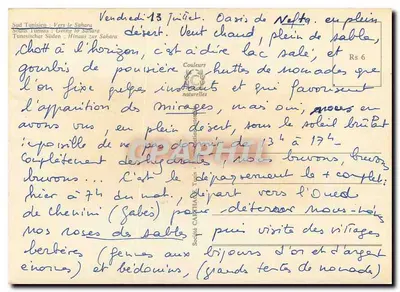 Sud Tunisien - Vers le Sahara
South Tunisia - Going to Sahara
Tunesischer Süden - Hinaus zur Sahara
Vendredi 13 Juillet. Oasis de Nefta. en plein
désert. Vent chaud, plein de sable,
chott à l'horizon, c'est à dire lac salé, et
gourbis de poussière, huttes de nomades que
l'on fixe instants et qui favorisent
l'apparition des mirages, mais oui, nous en
avons vus, en plein désert, sous le soleil brûlant
impossible de 13h à 17h
Complètement déshydratés, nous buvons, buvons
buvons... C'est le dépaysement le + complet:
hier à 7h du mat, départ vers l'Oued
de Chenini (Gabès) pour déterrer nous-mêmes
nos roses des sables - puis visite des villages
berbères (femmes aux bijoux d'or et d'argent
énormes) et bédouins, (grandes tentes de nomades)
Couleurs
naturelles
Rs 6
CARTHAGE